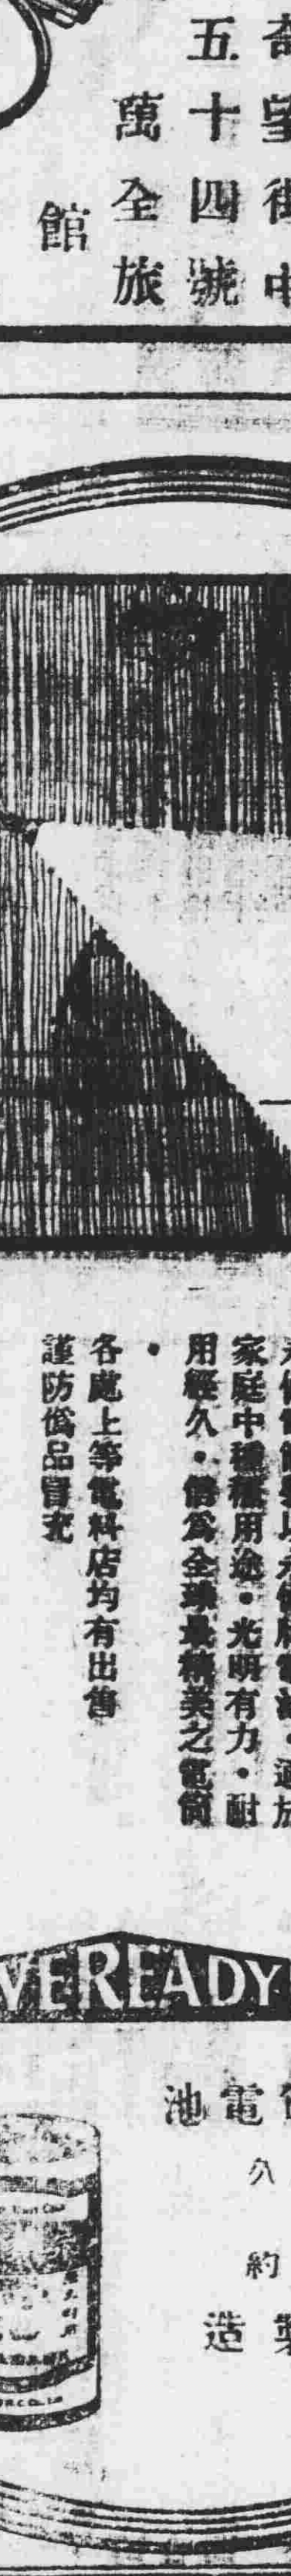 奇望街中
五十四號
萬全旅
館
家庭中種種用途・光明有力・耐
用經久・爲全球最精美之電筒
各處上等電料店均有出售
謹防僞品冒充
VEREADY
電池
久
約
製造